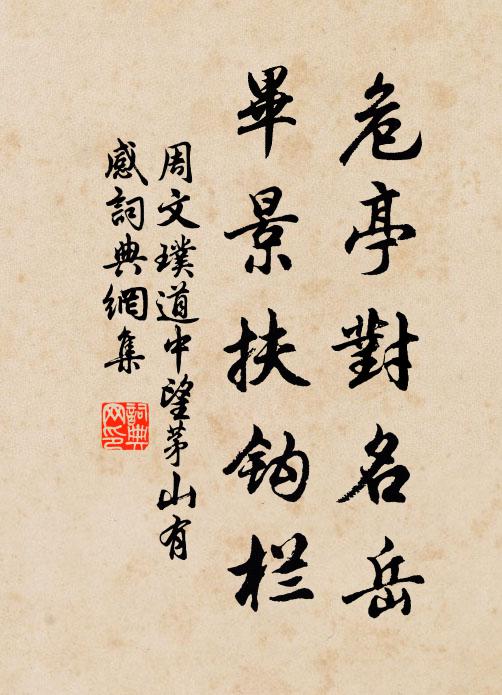 危亭對名岳
畢景扶鈎栏
周文璞道中望茅山有
感詞典網集
詞典
网印